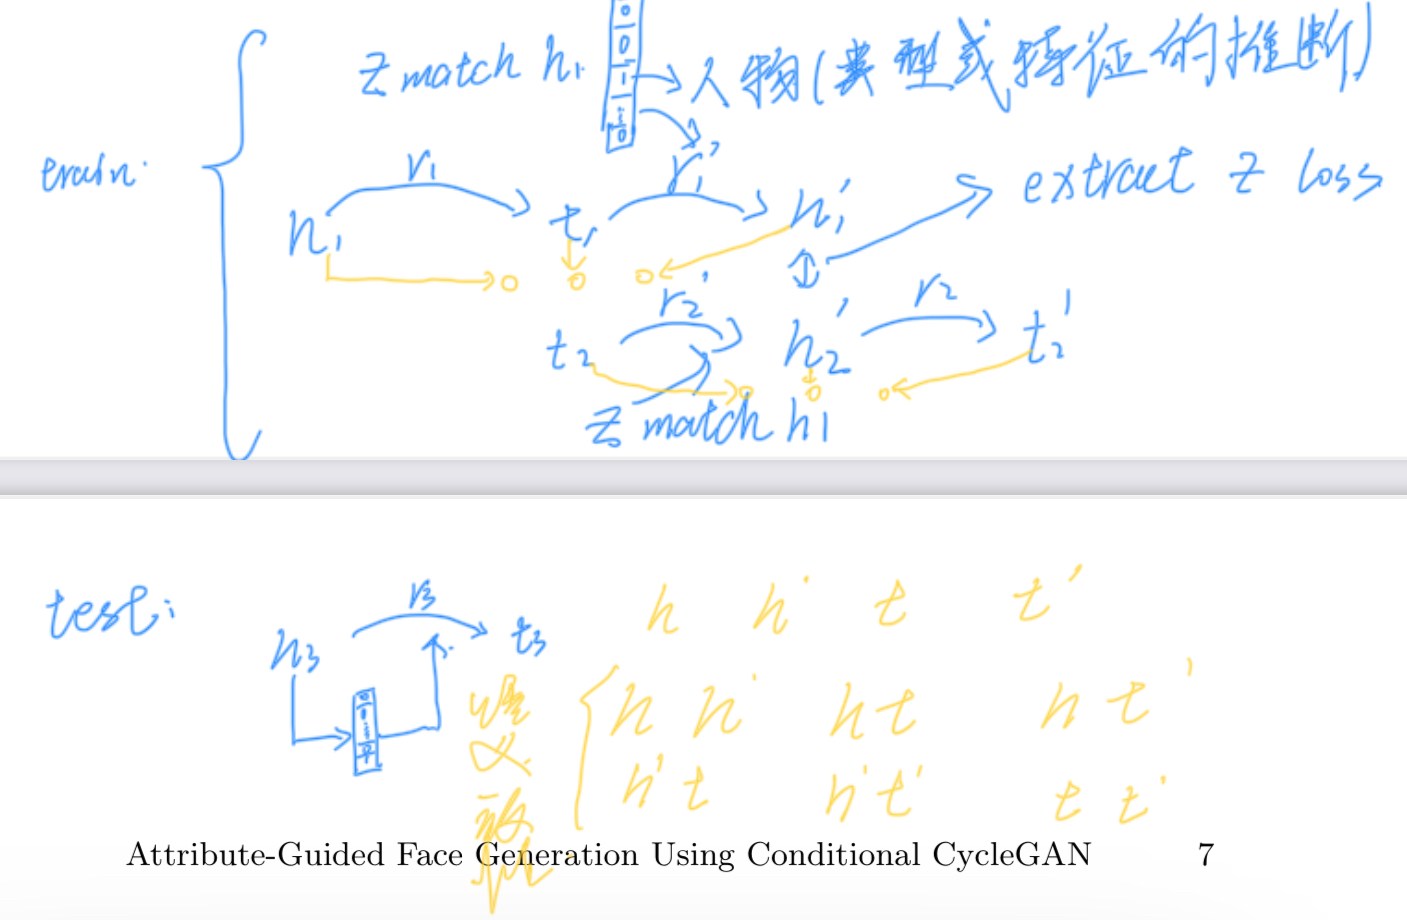 z match h1 0 0 1 0 → 人物(类型或特征的推断)
train:
r1 r1'
h1 t1 h1' extract z loss
r2' r2
t2 h2' t2'
z match h1
test:
r3
h3 t3
h h' t t'
h h' h t h t'
h' t h' t' t t'
Attribute-Guided Face Generation Using Conditional CycleGAN 7